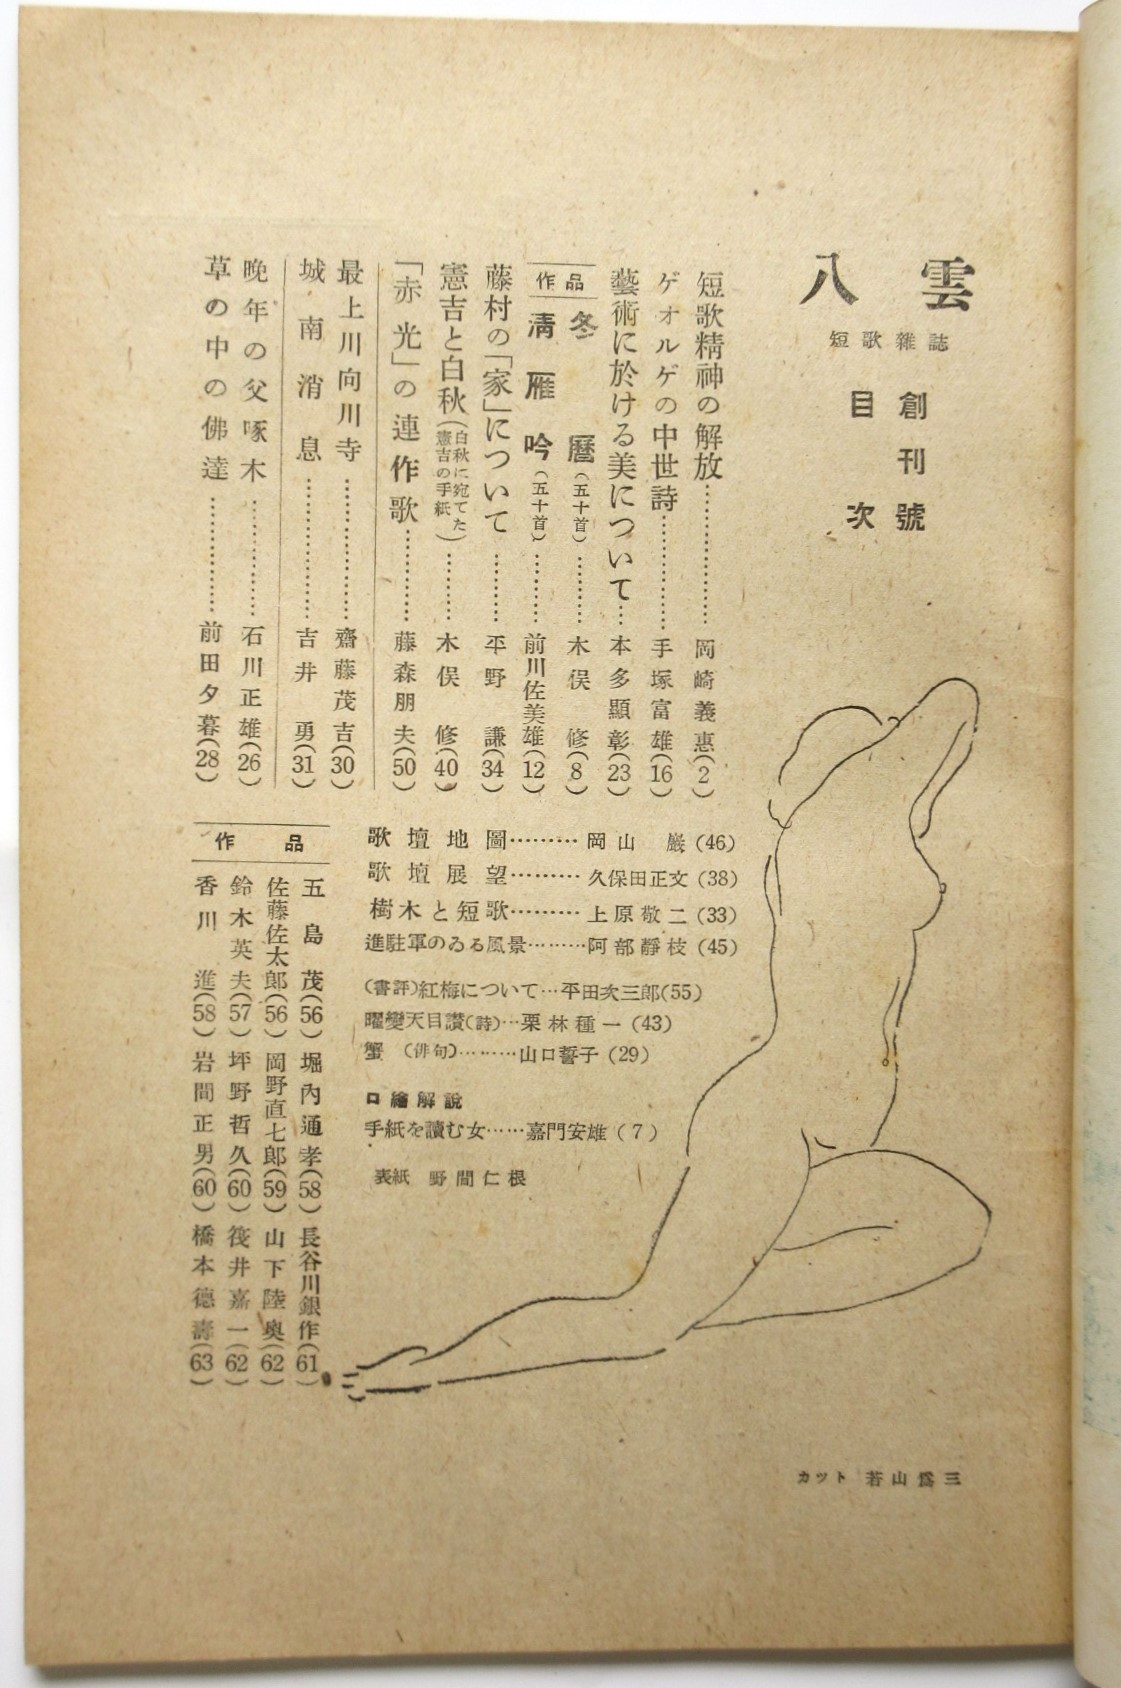 八雲
短歌雜誌
創刊號
目次
短歌精神の解放……………岡崎義惠(2)
ゲオルゲの中世詩…………手塚富雄(16)
藝術に於ける美について…本多顯彰(23)
作品
冬暦(五十首)………木俣修(8)
淸雁吟(五十首)………前川佐美雄(12)
藤村の「家」について………平野謙(34)
憲吉と白秋(白秋に宛てた憲吉の手紙)………木俣修(40)
「赤光」の連作歌…………藤森朋夫(50)
最上川向川寺……………齋藤茂吉(30)
城南消息……………吉井勇(31)
晩年の父啄木……………石川正雄(26)
草の中の佛達……………前田夕暮(28)
歌壇地圖………岡山巖(46)
歌壇展望………久保田正文(38)
樹木と短歌………上原敬二(33)
進駐軍のゐる風景………阿部靜枝(45)
(書評)紅梅について…平田次三郎(55)
曜變天目讃(詩)…栗林種一(43)
蟹(俳句)………山口誓子(29)
口繪解說
手紙を讀む女……嘉門安雄(7)
表紙 野間仁根
作品
五島茂(56) 堀內通孝(58) 長谷川銀作(61)
佐藤佐太郎(56) 岡野直七郎(59) 山下陸奧(62)
鈴木英夫(57) 坪野哲久(60) 筏井嘉一(62)
香川進(58) 岩間正男(60) 橋本德壽(63)
カット 若山爲三